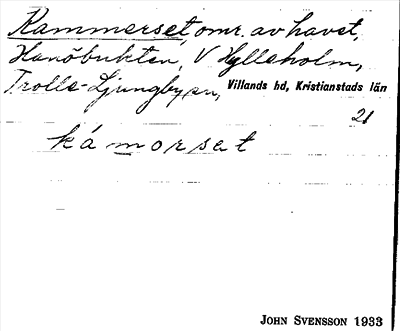 Kammerset, omr. av havet,
Hanöbukten, V Hylleholm,
Trolle-Ljungby sn, Villands hd, Kristianstads län
21
kámorsat
JOHN SVENSSON 1933